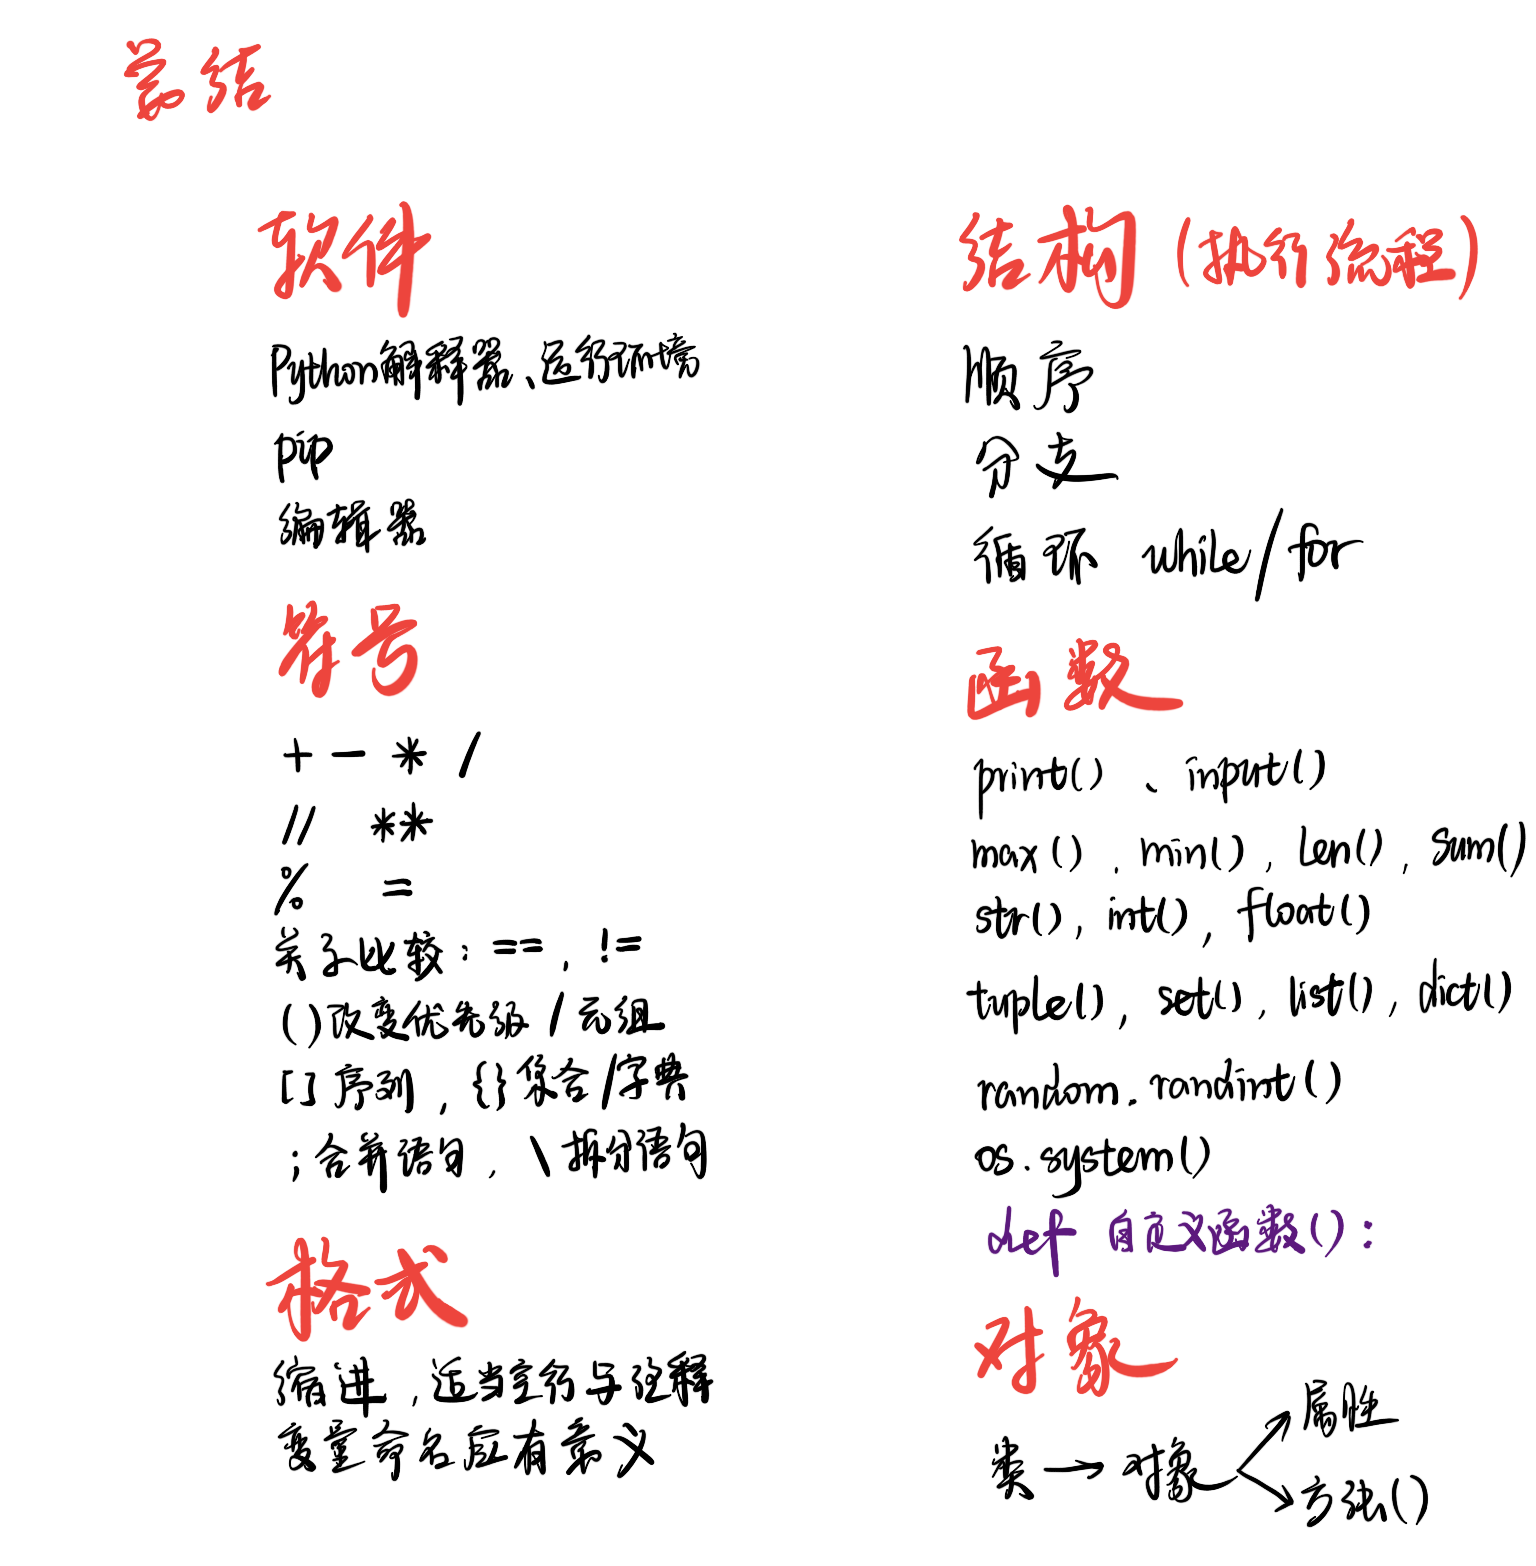 总结
软件
Python解释器、运行环境
pip
编辑器
符号
+ - * /
// **
% =
关于比较: ==, !=
()改变优先级 / 元组
[] 序列, {} 集合/字典
; 合并语句, \ 拆分语句
格式
缩进, 适当空行与注释
变量命名应有意义
结构 (执行流程)
顺序
分支
循环 while/for
函数
print() 、input()
max(), min(), len(), sum()
str(), int(), float()
tuple(), set(), list(), dict()
random.randint()
os.system()
def 自定义函数():
对象
属性
类→对象
方法()